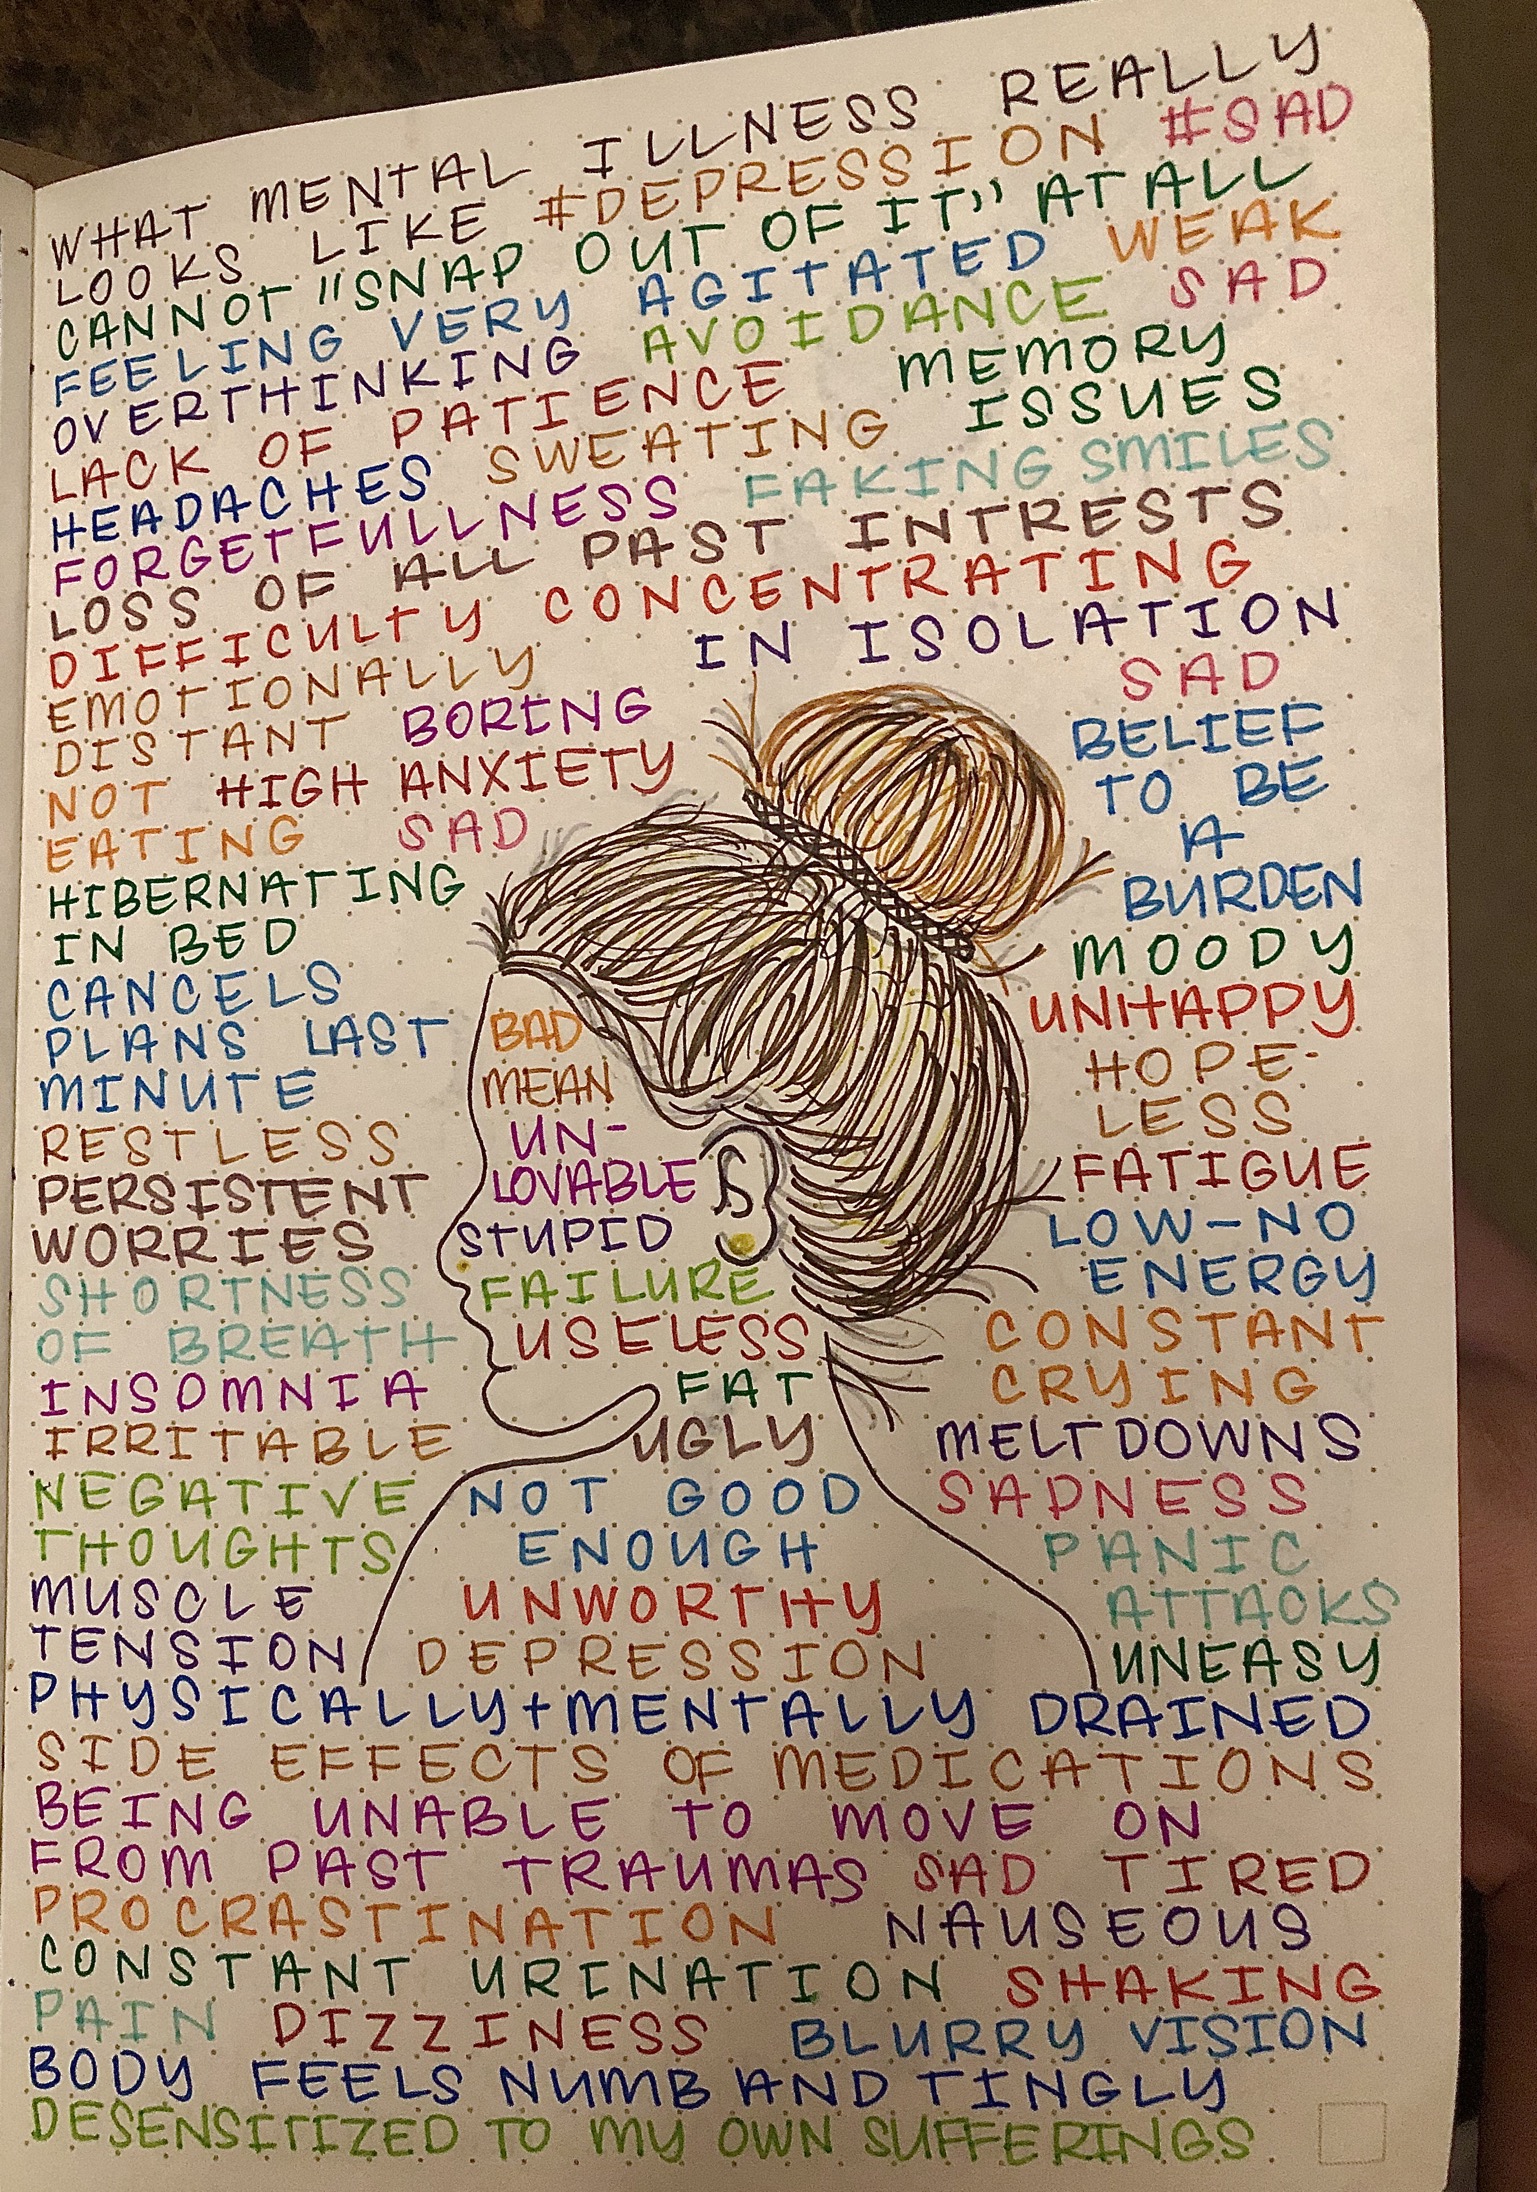 WHAT MENTAL ILLNESS REALLY
LOOKS LIKE #DEPRESSION #SAD
CANNOT "SNAP OUT OF IT" AT ALL
FEELING VERY AGITATED WEAK
OVERTHINKING AVOIDANCE SAD
LACK OF PATIENCE MEMORY
HEADACHES SWEATING ISSUES
FORGETFULLNESS FAKING SMILES
LOSS OF ALL PAST INTRESTS
DIFFICULTY CONCENTRATING
EMOTIONALLY IN ISOLATION
DISTANT BORING SAD
NOT HIGH ANXIETY
EATING SAD
HIBERNATING
IN BED
CANCELS
PLANS LAST
MINUTE
RESTLESS
PERSISTENT
WORRIES
SHORTNESS
OF BREATH
INSOMNIA
IRRITABLE
NEGATIVE
THOUGHTS
MUSCLE
TENSION
BAD
MEAN
UN-
LOVABLE
STUPID
FAILURE
USELESS
FAT
UGLY
NOT GOOD
ENOUGH
UNWORTHY
DEPRESSION
BELIEF
TO BE
A
BURDEN
MOODY
UNHAPPY
HOPE-
LESS
FATIGUE
LOW-NO
ENERGY
CONSTANT
CRYING
MELTDOWNS
SADNESS
PANIC
ATTACKS
UNEASY
PHYSICALLY+MENTALLY DRAINED
SIDE EFFECTS OF MEDICATIONS
BEING UNABLE TO MOVE ON
FROM PAST TRAUMAS SAD TIRED
PROCRASTINATION NAUSEOUS
CONSTANT URINATION SHAKING
PAIN DIZZINESS BLURRY VISION
BODY FEELS NUMB AND TINGLY
DESENSITIZED TO MY OWN SUFFERINGS